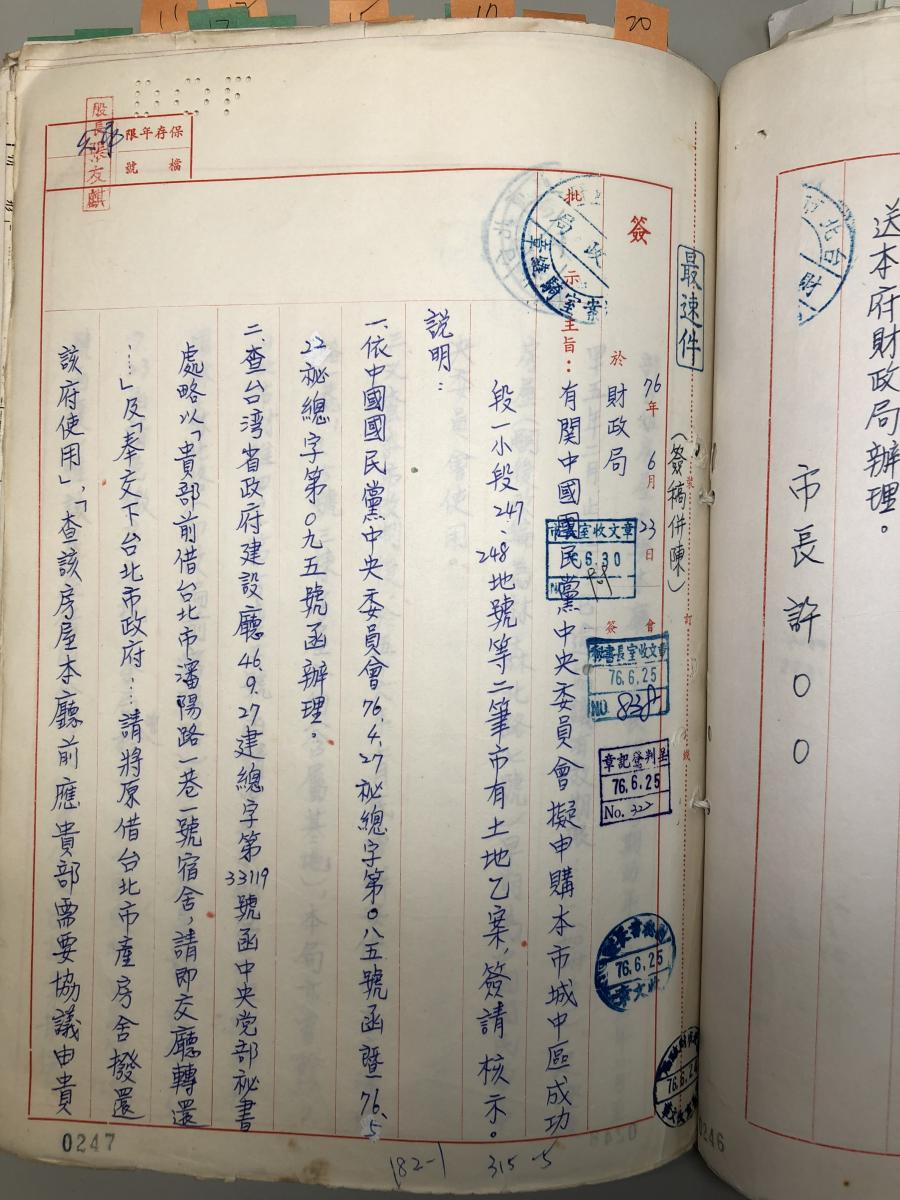 11
15
10
20
送本府財政局辦理。
市長許〇〇
最速件
(簽稿併陳)
裝
訂
線
簽
於
財政局
76年6月23日
會
簽
批
示
主旨:有関中國國民黨中央委員會擬申購本市城中區成功
段一小段247、248地號等二筆市有土地乙案,簽請核示。
説明:
一、依中國國民黨中央委員會76.4.27祕總字第〇八五號函暨76.5.
22祕總字第〇九五號函辦理。
二、查台湾省政府建設廳46.9.27建總字第33119號函中央党部祕書
處略以「貴部前借台北市瀋陽路一巷一號宿舍,請即交廳轉還
…」及「奉交下台北市政府…請將原借台北市產房舍撥還
該府使用」,「查該房屋本廳前應貴部需要協議由貴
保存年限
檔號
股長張友麒
章文收座
6.30
祕書長室收文章
76.6.25
NO. 838
76.6.25
No. 322
76.6.25
76.6.24
台北市
財
政局
騎縫章
0247
0246
182-1
315-5